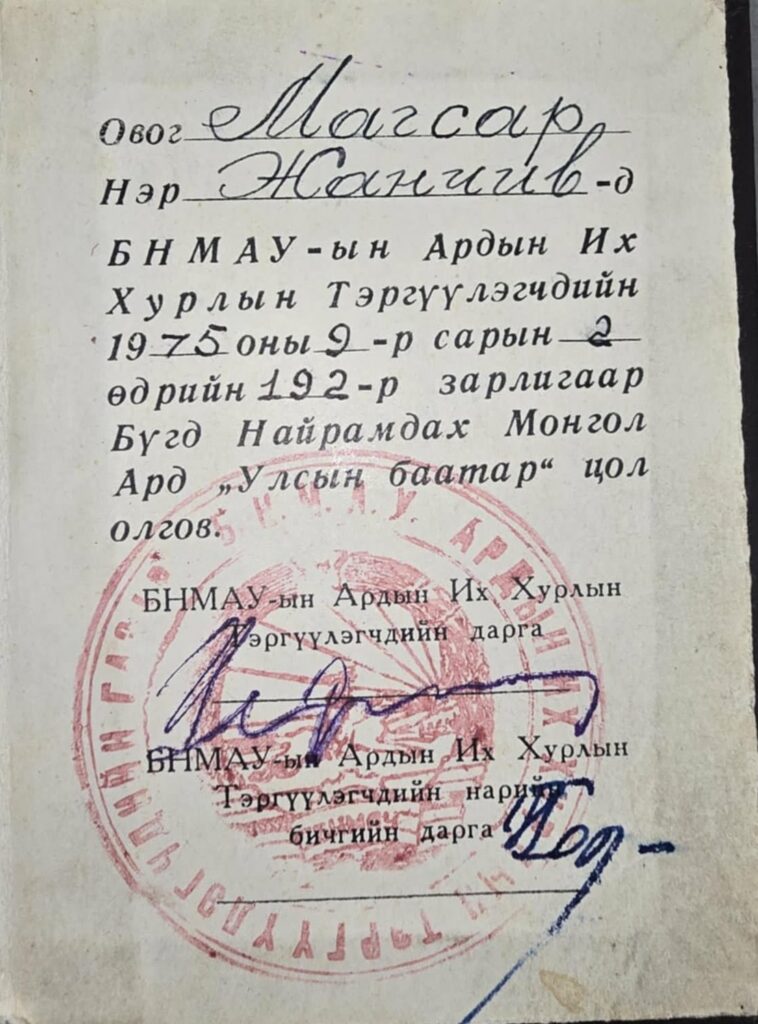 Овог Магсар
Нэр Жанчив-д
БНМАУ-ын Ардын Их
Хурлын Тэргүүлэгчдийн
1975 оны 9-р сарын 2
өдрийн 192-р зарлигаар
Бүгд Найрамдах Монгол
Ард „Улсын баатар“ цол
олгов.
БНМАУ-ын Ардын Их Хурлын
Тэргүүлэгчдийн дарга
БНМАУ-ын Ардын Их Хурлын
Тэргүүлэгчдийн нарийн
бичгийн дарга
Б.Н.М.А.У. АРДЫН ИХ ТЭРГҮҮЛЭГЧДИЙН ГАЗАР